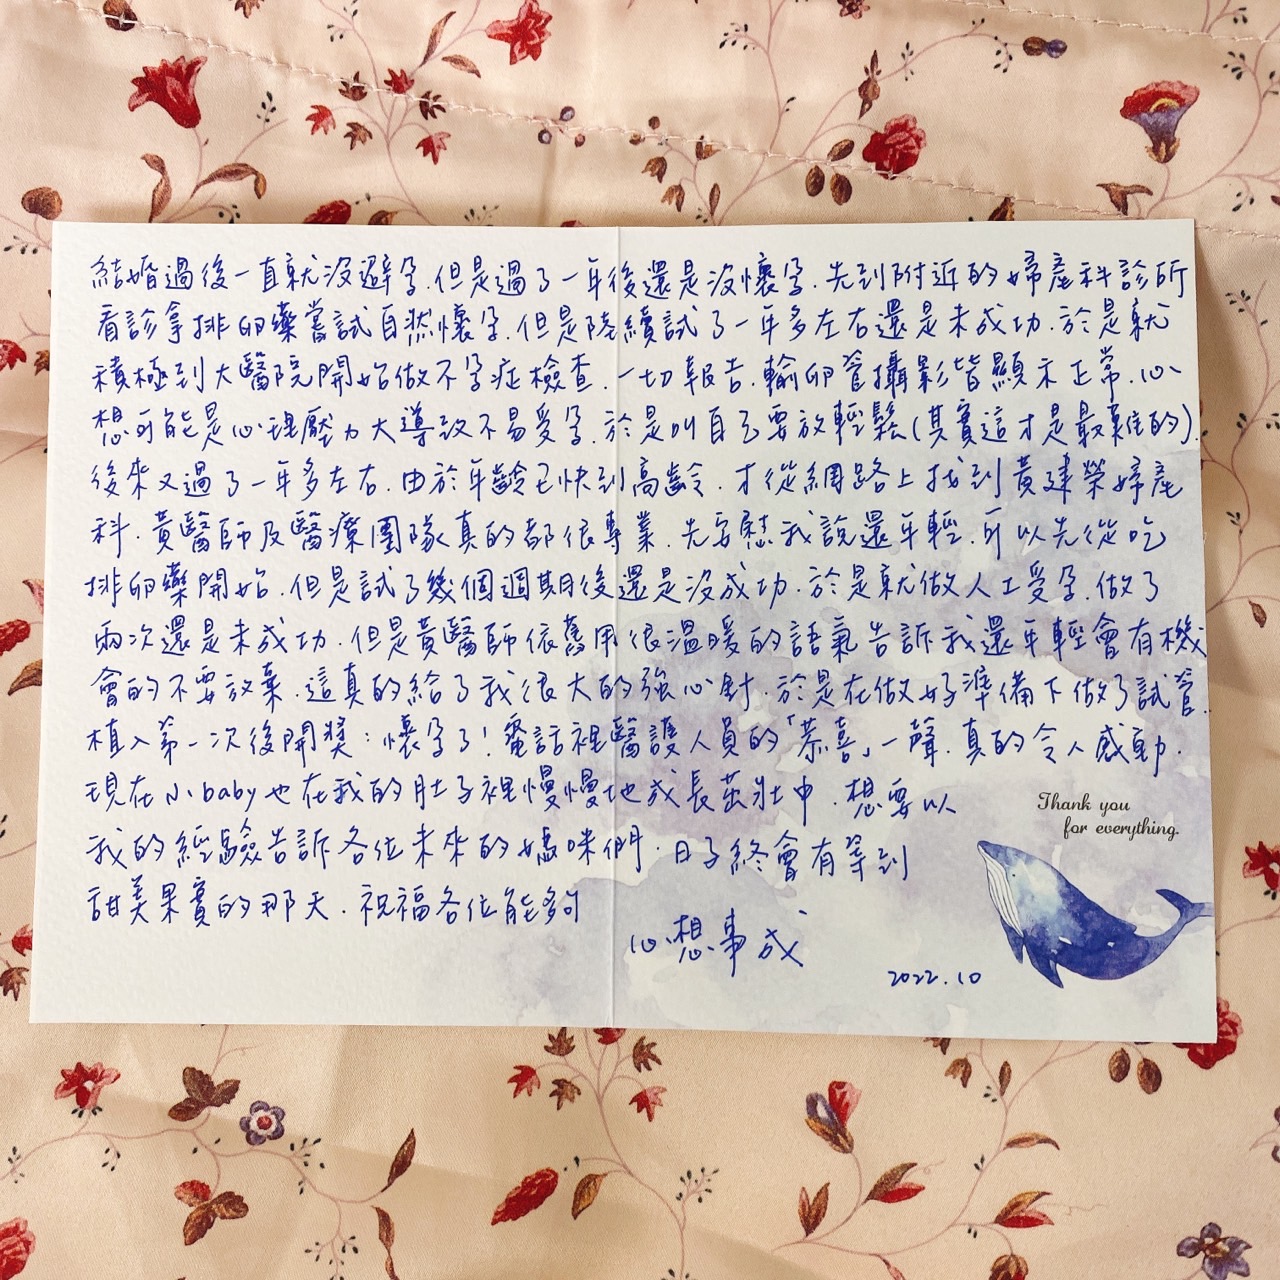 結婚過後一直就沒避孕.但是過了一年後還是沒懷孕.先到附近的婦產科診所
看診拿排卵藥嘗試自然懷孕.但是陸續試了一年多左右還是未成功.於是就
積極到大醫院開始做不孕症檢查.一切報告.輸卵管攝影皆顯示正常.心
想可能是心理壓力大導致不易受孕.於是叫自己要放輕鬆(其實這才是最難的).
後來又過了一年多左右.由於年齡已快到高齡.才從網路上找到黃建榮婦產
科.黃醫師及醫療團隊真的都很專業.先安慰我說還年輕.可以先從吃
排卵藥開始.但是試了幾個週期後還是沒成功.於是就做人工受孕.做了
兩次還是未成功.但是黃醫師依舊用很溫暖的語氣告訴我還年輕會有機
會的不要放棄.這真的給了我很大的強心針.於是在做好準備下做了試管.
植入第一次後開獎:懷孕了!電話裡醫護人員的「恭喜」一聲.真的令人感動.
現在小baby也在我的肚子裡慢慢地成長茁壯中.想要以
我的經驗告訴各位未來的媽咪們.日子終會有等到
甜美果實的那天.祝福各位能夠
心想事成
2022.10
Thank you
for everything.